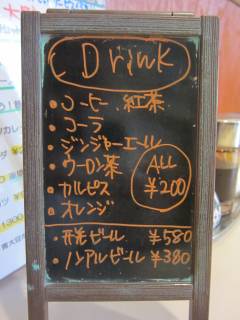 Drink
・コーヒー 紅茶
・コーラ
・ジンジャーエール
・ウーロン茶
・カルピス
・オレンジ
ALL
¥200
・生ビール ¥580
・ノンアルビール ¥380